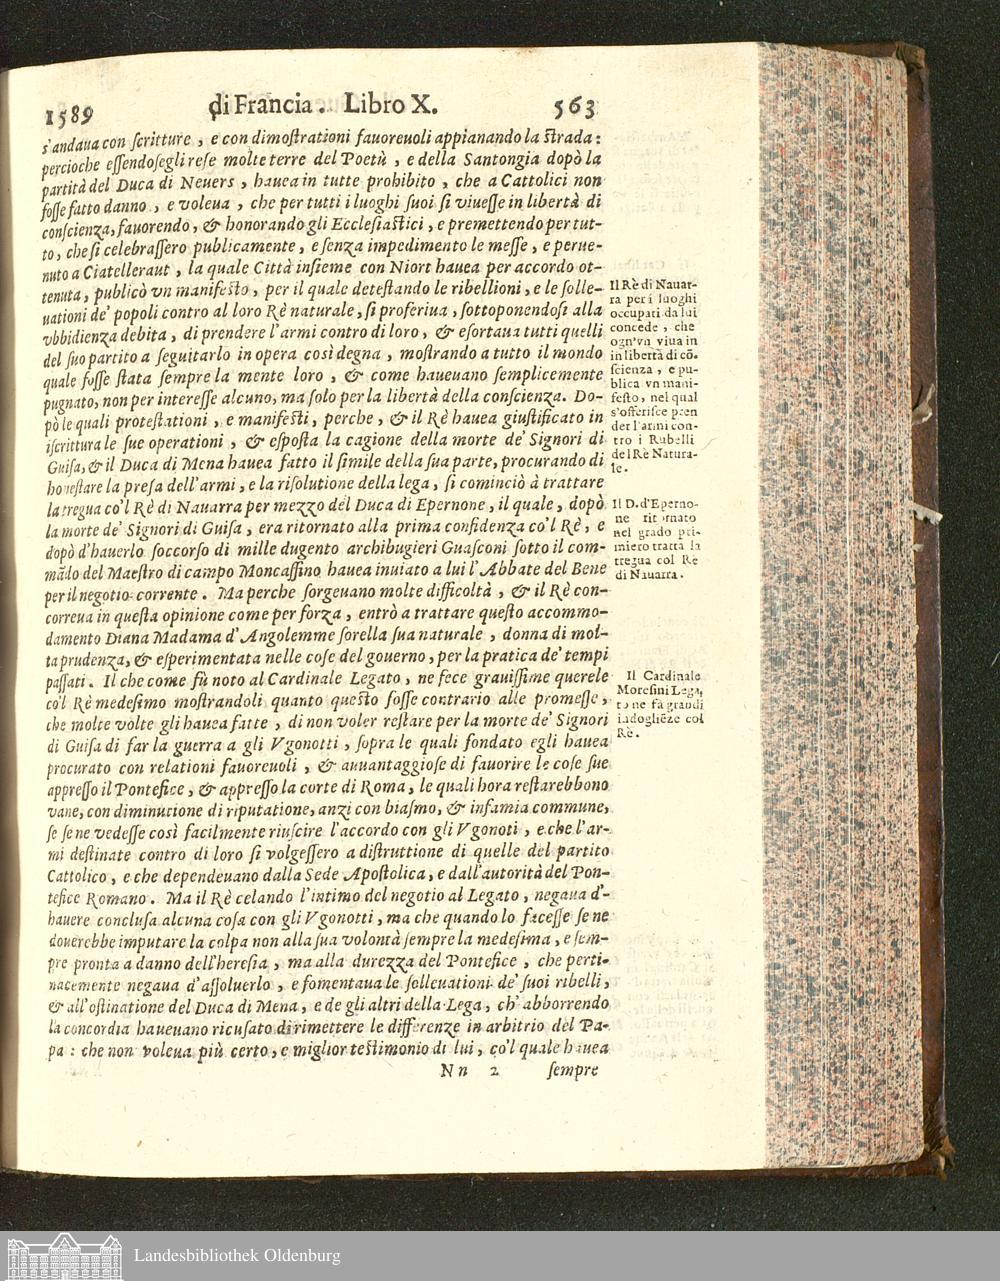 1589 di Francia. Libro X. 563
s'andaua con ſcritture, e con dimoſtrationi fauoreuoli appianando la ſtrada:
percioche eſſendoſegli reſe molte terre del Poetù, e della Santongia dopò la
partità del Duca di Neuers, hauea in tutte prohibito, che a Cattolici non
foſſe fatto danno, e voleua, che per tutti i luoghi ſuoi ſi viueſſe in libertà di
conſcienza, fauorendo, & honorando gli Eccleſiaſtici, e premettendo per tut-
to, che ſi celebraſſero publicamente, e ſenza impedimento le meſſe, e perue-
nuto a Ciatelleraut, la quale Città inſieme con Niort hauea per accordo ot-
tenuta, publicò vn manifeſto, per il quale deteſtando le ribellioni, e le ſolle-
uationi de' popoli contro al loro Rè naturale, ſi proferiua, ſottoponendoſi alla
vbbidienza debita, di prendere l'armi contro di loro, & eſortaua tutti quelli
del ſuo partito a ſeguitarlo in opera così degna, moſtrando a tutto il mondo
quale foſſe ſtata ſempre la mente loro, & come haueuano ſemplicemente
pugnato, non per intereſſe alcuno, ma ſolo per la libertà della conſcienza. Do-
pò le quali proteſtationi, e manifeſti, perche, & il Rè hauea giuſtificato in
iſcrittura le ſue operationi, & eſpoſta la cagione della morte de' Signori di
Guiſa, & il Duca di Mena hauea fatto il ſimile della ſua parte, procurando di
honeſtare la preſa dell'armi, e la riſolutione della lega, ſi cominciò à trattare
la tregua co'l Rè di Nauarra per mezzo del Duca di Epernone, il quale, dopò
la morte de' Signori di Guiſa, era ritornato alla prima confidenza co'l Rè, e
dopò d'hauerlo ſoccorſo di mille dugento archibugieri Guaſconi ſotto il com-
mãdo del Maeſtro di campo Moncaſſino hauea inuiato a lui l'Abbate del Bene
per il negotio corrente. Ma perche ſorgeuano molte difficoltà, & il Rè con-
correua in queſta opinione come per forza, entrò a trattare queſto accommo-
damento Diana Madama d'Angolemme ſorella ſua naturale, donna di mol-
ta prudenza, & eſperimentata nelle coſe del gouerno, per la pratica de' tempi
paſſati. Il che come fù noto al Cardinale Legato, ne fece grauiſſime querele
co'l Rè medeſimo moſtrandoli quanto queſto foſſe contrario alle promeſſe,
che molte volte gli hauea fatte, di non voler reſtare per la morte de' Signori
di Guiſa di far la guerra a gli Vgonotti, ſopra le quali fondato egli hauea
procurato con relationi fauoreuoli, & auuantaggioſe di fauorire le coſe ſue
appreſſo il Pontefice, & appreſſo la corte di Roma, le quali hora reſtarebbono
vane, con diminutione di riputatione, anzi con biaſmo, & infamia commune,
ſe ſe ne vedeſſe così facilmente riuſcire l'accordo con gli Vgonoti, e che l'ar-
mi deſtinate contro di loro ſi volgeſſero a diſtruttione di quelle del partito
Cattolico, e che dependeuano dalla Sede Apoſtolica, e dall'autorità del Pon-
tefice Romano. Ma il Rè celando l'intimo del negotio al Legato, negaua d'-
hauere concluſa alcuna coſa con gli Vgonotti, ma che quando lo faceſſe ſe ne
douerebbe imputare la colpa non alla ſua volontà ſempre la medeſima, e ſem-
pre pronta a danno dell'hereſia, ma alla durezza del Pontefice, che perti-
nacemente negaua d'aſſoluerlo, e fomentaua le ſolleuationi de' ſuoi ribelli,
& all'oſtinatione del Duca di Mena, e de gli altri della Lega, ch'abborrendo
la concordia haueuano ricuſato di rimettere le differenze in arbitrio del Pa-
pa: che non voleua più certo, e miglior teſtimonio di lui, co'l quale hauea
N n 2 ſempre
Il Rè di Nauar-
ra per i luoghi
occupati da lui
concede, che
ogn'vn viua in
in libertà di cõ-
ſcienza, e pu-
blica vn mani-
feſto, nel qual
s'offeriſce pren
der l'armi con-
tro i Rubelli
del Rè Natura-
le.
Il D. d'Eperno-
ne ritornato
nel grado pri-
miero tratta la
tregua col Rè
di Nauarra.
Il Cardinale
Moreſini Lega,
to ne fà grandi
indogliẽze col
Rè.
Landesbibliothek Oldenburg